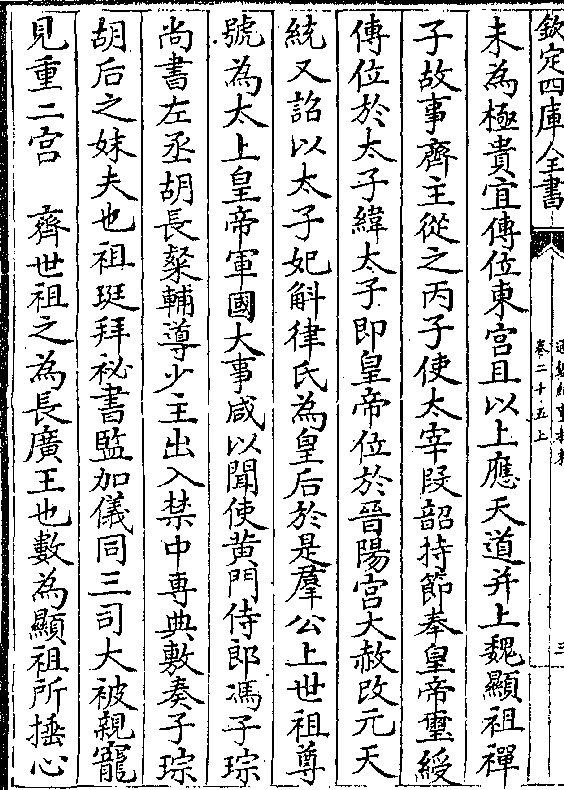 欽定四庫全書
通鑑紀事本末
卷二十五上
三
未為極貴宜傳位東宮且以上應天道并上魏顯祖禪
子故事齊主從之丙子使太宰段韶持節奉皇帝璽綬
傳位於太子緯太子即皇帝位於晉陽宮大赦改元天
統又詔以太子妃斛律氏為皇后於是羣公上世祖尊
號為太上皇帝軍國大事咸以聞使黄門侍郎馮子琮
尚書左丞胡長粲輔導少主出入禁中專典敷奏子琮
胡后之妹夫也祖珽拜祕書監加儀同三司大被親寵
見重二宮　齊世祖之為長廣王也數為顯祖所捶心